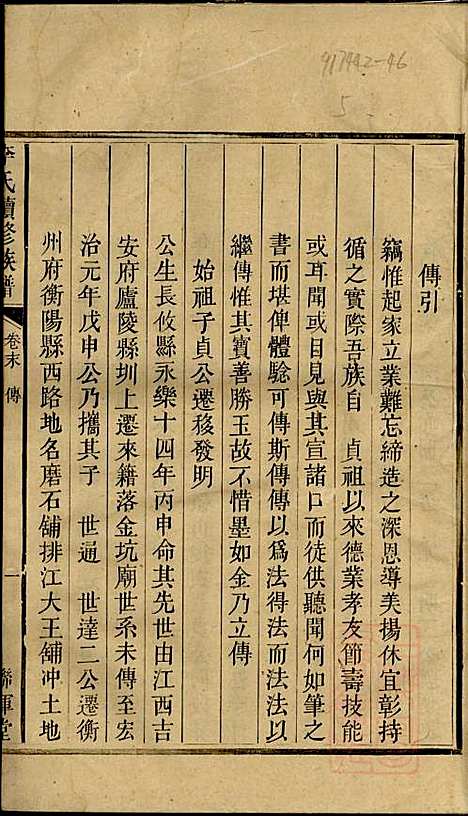 917442-46
5
傳引
竊惟起家立業難忘締造之深恩導美揚休宜彰持
循之實際吾族自 貞祖以來德業孝友節壽技能
或耳聞或目見與其宣諸口而徒供聽聞何如筆之
書而堪俾體驗可傳斯傳傳以爲法得法而法法以
繼傳惟其寶善勝玉故不惜墨如金乃立傳
始祖子貞公遷移發明
公生長攸縣永樂十四年丙申命其先世由江西吉
安府廬陵縣圳上遷來籍落金坑廟世系未傳至宏
治元年戊申公乃攜其子 世通 世達二公遷衡
州府衡陽縣西路地名磨石舖排江大王舖冲土地
李氏續修族譜
卷末 傳
一
聯軍堂